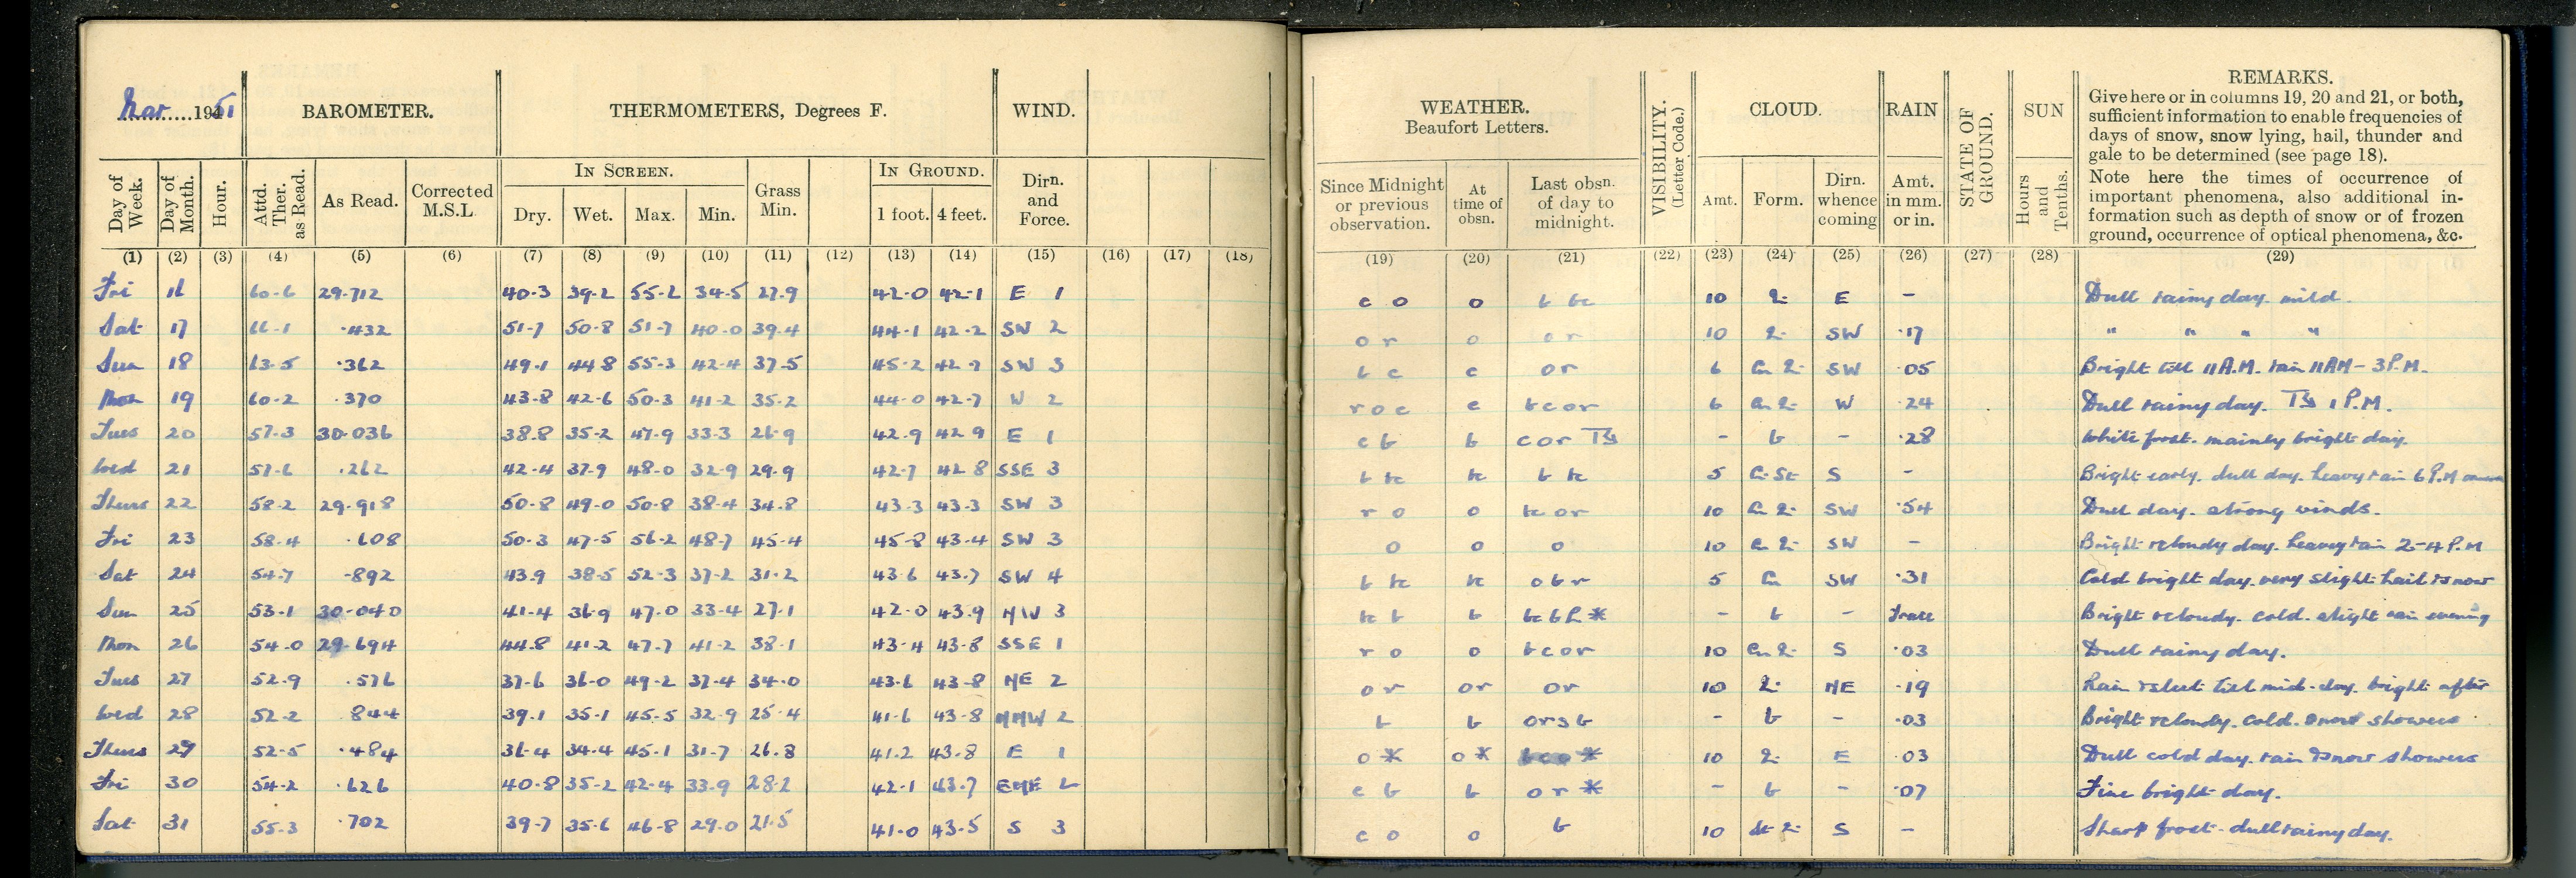 Mar 1951
BAROMETER.
THERMOMETERS, Degrees F.
WIND.
WEATHER.
Beaufort Letters.
VISIBILITY.
(Letter Code.)
CLOUD.
RAIN
STATE OF GROUND.
SUN
REMARKS.
Give here or in columns 19, 20 and 21, or both,
sufficient information to enable frequencies of
days of snow, snow lying, hail, thunder and
gale to be determined (see page 18).
Note here the times of occurrence of
important phenomena, also additional in-
formation such as depth of snow or of frozen
ground, occurrence of optical phenomena, &c.
Day of Week. Day of Month. Hour. Attd. Ther. as Read. As Read. Corrected M.S.L.
IN SCREEN.
Dry. Wet. Max. Min.
Grass Min.
IN GROUND.
1 foot. 4 feet.
Dirn. and Force.
Since Midnight or previous observation.
At time of obsn.
Last obsn. of day to midnight.
Amt. Form. Dirn. whence coming
Amt. in mm. or in.
Hours and Tenths.
(1) (2) (3) (4) (5) (6) (7) (8) (9) (10) (11) (12) (13) (14) (15) (16) (17) (18) (19) (20) (21) (22) (23) (24) (25) (26) (27) (28) (29)
Fri 16 60.6 29.712 40.3 39.2 55.2 34.5 27.9 42.0 42.1 E 1 c o o b bc 10 E - Dull rainy day. mild.
Sat 17 66.1 .432 51.7 50.8 51.7 40.0 39.4 44.1 42.2 SW 2 o r o o r 10 SW .17 " " " "
Sun 18 63.5 .362 49.1 44.8 55.3 42.4 37.5 45.2 42.7 SW 3 b c c o r 6 SW .05 Bright till 11 A.M. rain 11 AM - 3 P.M.
Mon 19 60.2 .370 43.8 42.6 50.3 41.2 35.2 44.0 42.7 W 2 r o c c b c o r 6 W .24 Dull rainy day. 1 P.M.
Tues 20 57.3 30.036 38.8 35.2 47.9 33.3 26.9 42.9 42.9 E 1 c b b c o r - b - .28 White frost. mainly bright day.
Wed 21 57.6 .262 42.4 37.9 48.0 32.9 29.9 42.7 42.8 SSE 3 b bc bc b bc 5 S - Bright early. dull day. heavy rain 6 P.M
Thurs 22 58.2 29.918 50.8 49.0 50.8 38.4 34.8 43.3 43.3 SW 3 r o o bc o r 10 SW .54 Dull day. strong winds.
Fri 23 58.4 .608 50.3 47.5 56.2 48.7 45.4 45.8 43.4 SW 3 o o o 10 SW - Bright & cloudy day. heavy rain 2-4 P.M
Sat 24 54.7 .892 43.9 38.5 52.3 37.2 31.2 43.6 43.7 SW 4 b bc bc o b r 5 SW .31 Cold bright day. very slight hail & snow
Sun 25 53.1 30.040 41.4 36.9 47.0 33.4 27.1 42.0 43.9 NW 3 bc b b bc b h * - b - Trace Bright & cloudy. cold. slight rain evening
Mon 26 54.0 29.694 44.8 41.2 47.7 41.2 38.1 43.4 43.8 SSE 1 r o o b c o r 10 S .03 Dull rainy day.
Tues 27 52.9 .576 37.6 36.0 49.2 37.4 34.0 43.6 43.8 NE 2 o r o r o r 10 NE .19 Rain & sleet till mid-day. bright after
Wed 28 52.2 .844 39.1 35.1 45.5 32.9 25.4 41.6 43.8 NNW 2 b b o r s b - b - .03 Bright & cloudy. cold. snow showers
Thurs 29 52.5 .484 36.4 34.4 45.1 31.7 26.8 41.2 43.8 E 1 o * o * b c o * 10 E .03 Dull cold day. rain & snow showers
Fri 30 54.2 .626 40.8 35.2 42.4 33.9 28.2 42.1 43.7 ENE 2 c b b o r * - b - .07 Fine bright day.
Sat 31 55.3 .702 39.7 35.6 46.8 29.0 21.5 41.0 43.5 S 3 c o o b 10 S - Sharp frost - dull rainy day.